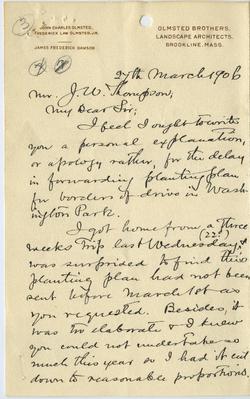 JOHN CHARLES OLMSTED.
FREDERICK LAW OLMSTED, JR.
JAMES FREDERICK DAWSON
OLMSTED BROTHERS,
LANDSCAPE ARCHITECTS,
BROOKLINE, MASS.
27th March 1906
Mr. J. W. Thompson,
My Dear Sir;
I feel I ought to write
you a personal explanation,
or apology rather, for the delay
in forwarding planting plan
for borders of drive in Wash-
ington Park.
I got home from a three
weeks trip last Wednesday &
(22?)
was surprised to find this
planting plan had not been
sent before March 1st as
you requested. Besides, it
was too elaborate & I knew
you could not undertake so
much this year so I had it cut
down to reasonable proportions.